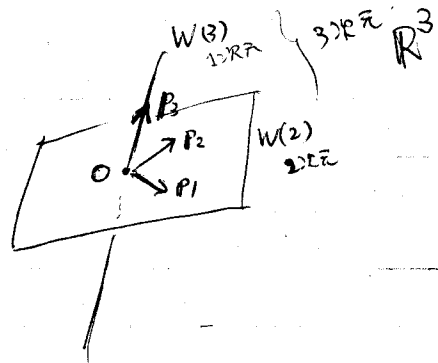 W(3)
1次元
3次元 ℝ³
P3
P2
W(2)
2次元
O
P1